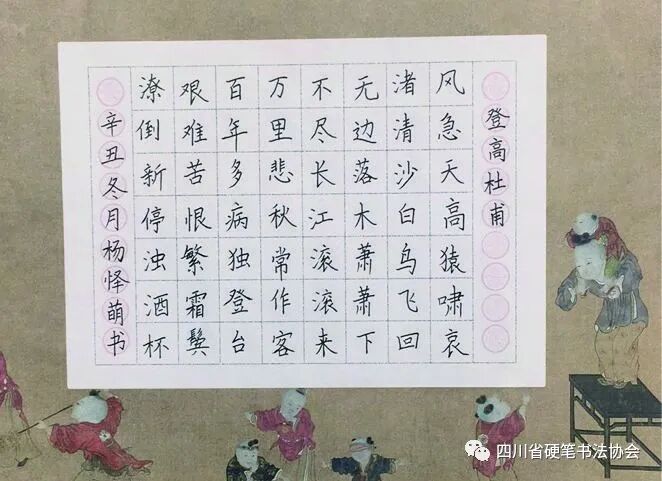 登高杜甫
风急天高猿啸哀
渚清沙白鸟飞回
无边落木萧萧下
不尽长江滚滚来
万里悲秋常作客
百年多病独登台
艰难苦恨繁霜鬓
潦倒新停浊酒杯
辛丑冬月杨怿萌书
四川省硬笔书法协会